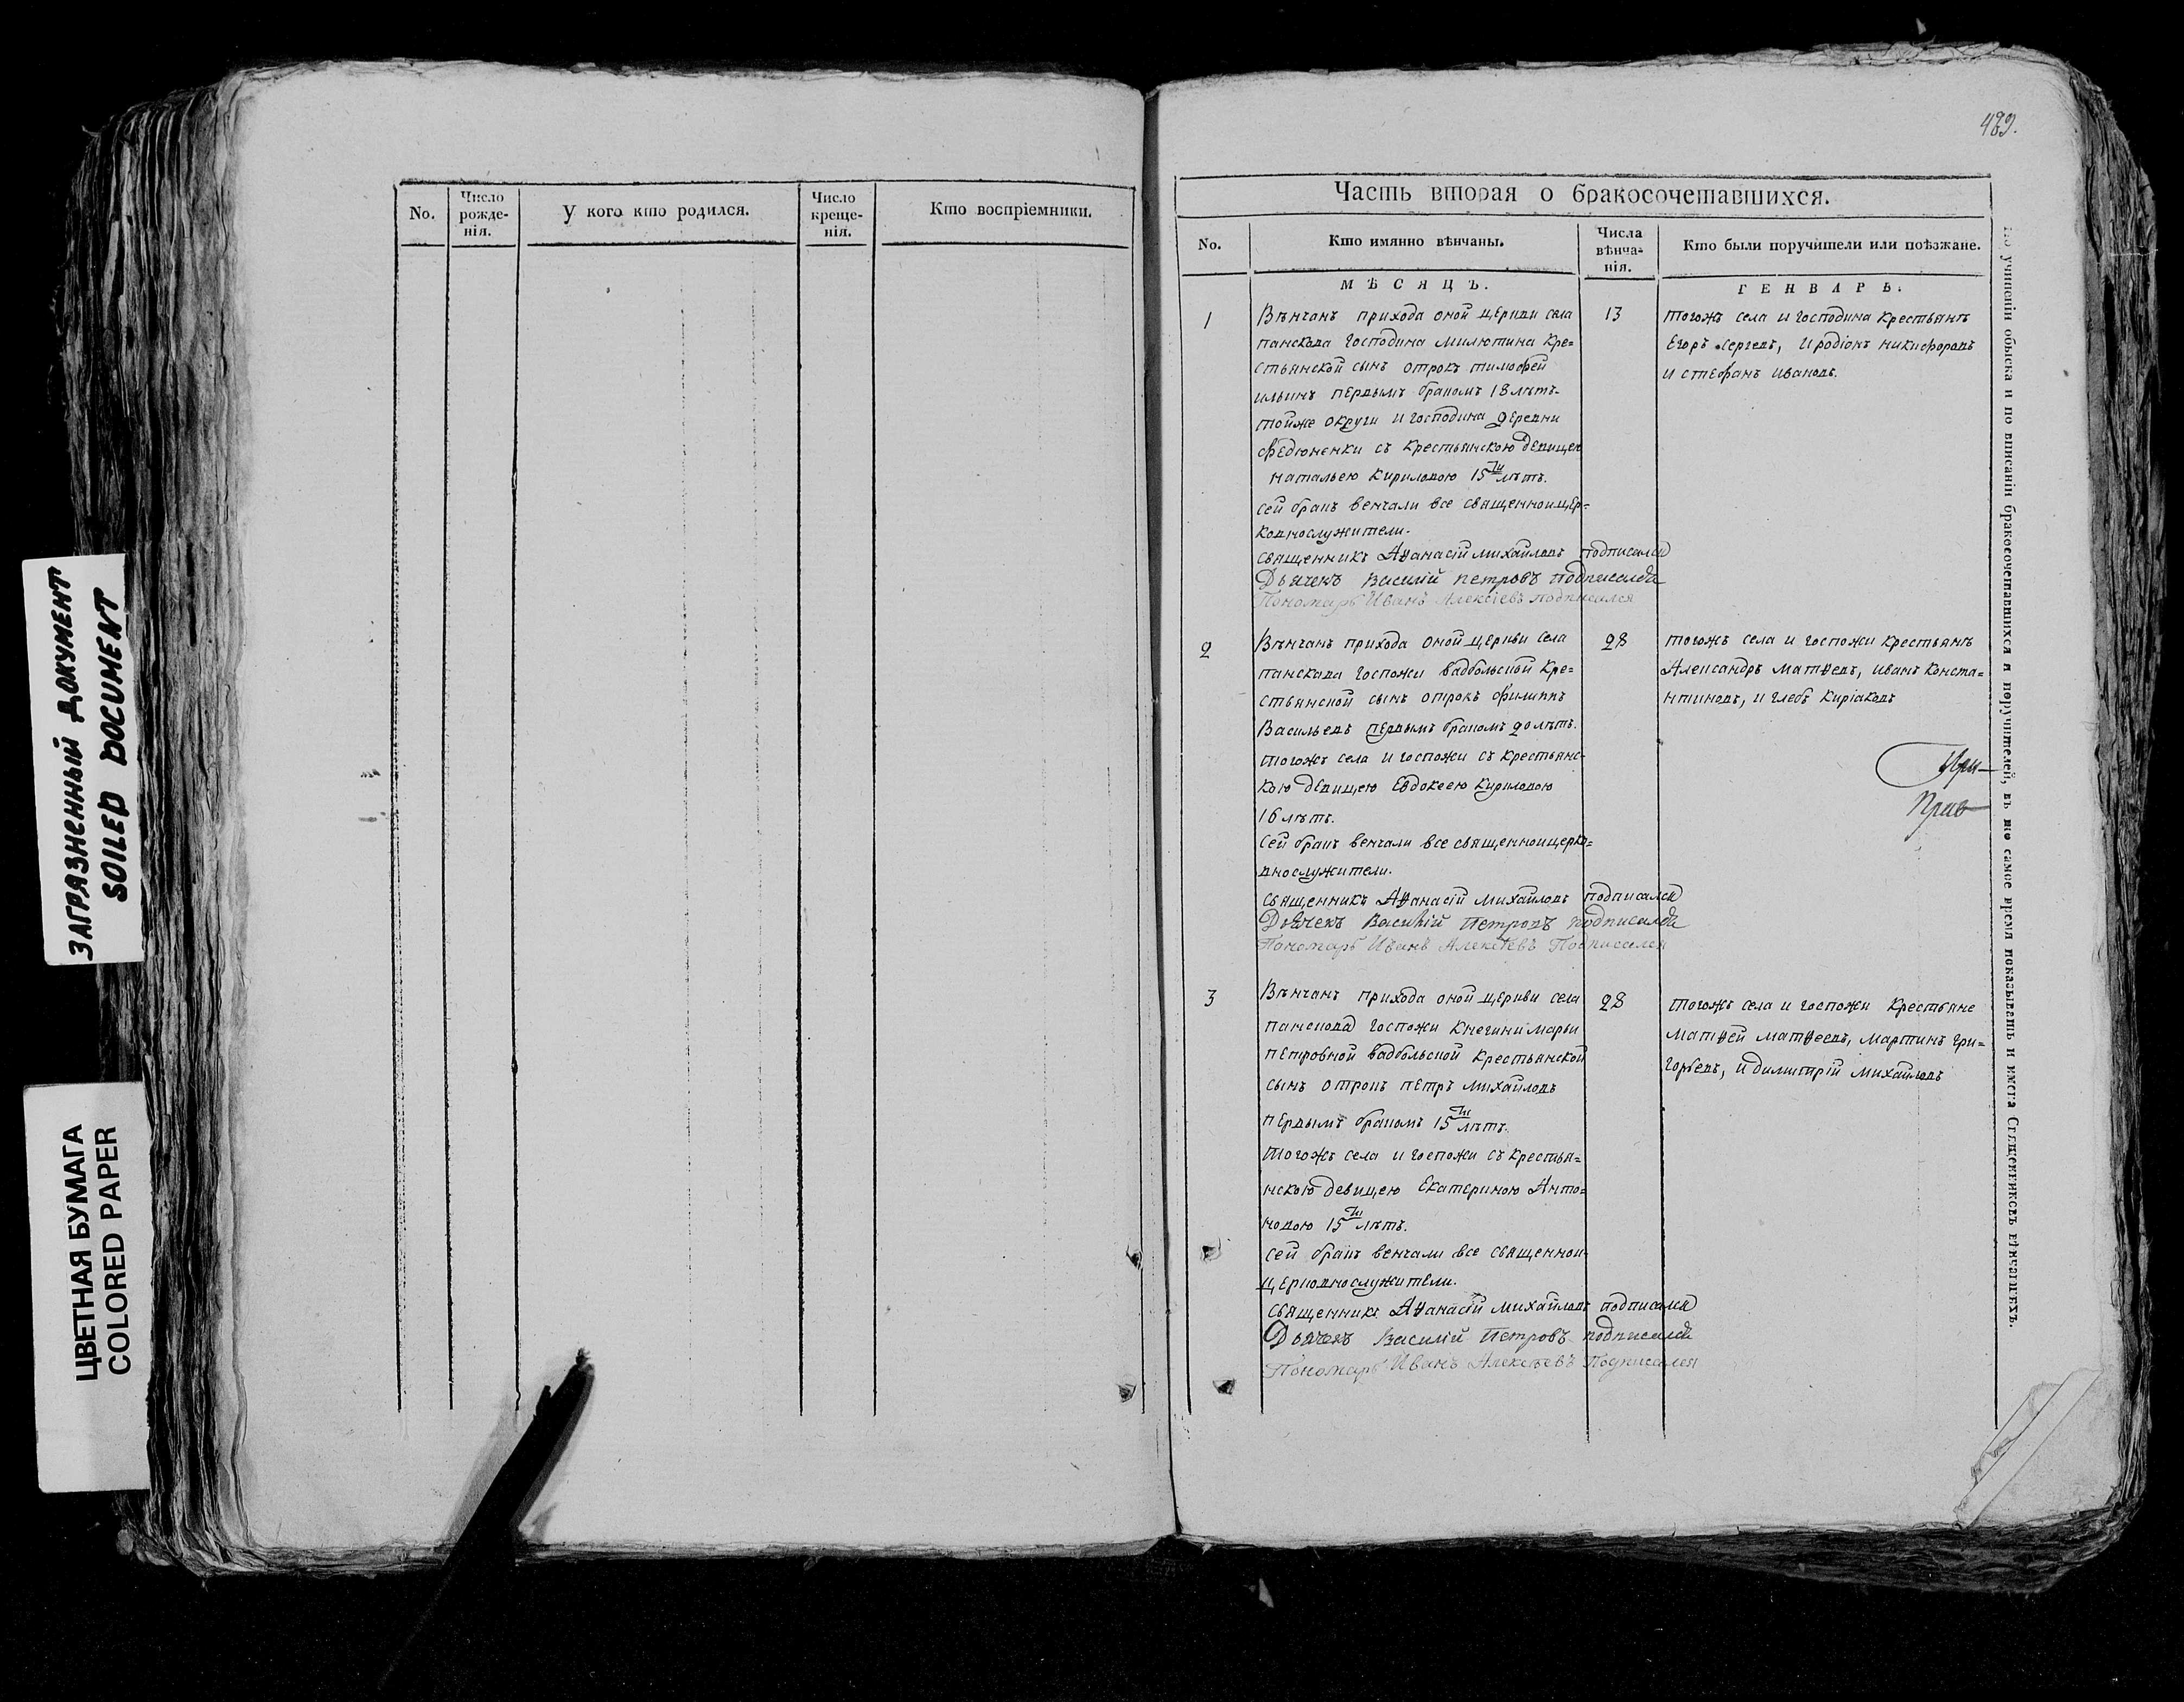 ЗАГРЯЗНЕННЫЙ ДОКУМЕНТ
SOILED DOCUMENT
ЦВЕТНАЯ БУМАГА
COLORED PAPER
No.
Число рожде-
нія.
У кого кто родился.
Число креще-
нія.
Кто воспріемники.
489.
Часть вторая о бракосочетавшихся.
No.
Кто имянно вѣнчаны.
Числа вѣнча-
нія.
Кто были поручители или поѣзжане.
МѢСЯЦЪ.
ГЕНВАРЬ.
1
Вѣнчанъ прихода оной церкви села
панскова Господина милютина кре=
стьянской сынъ отрокъ тимофей
ильинъ первымъ бракомъ 18 лѣтъ.
тойже округи и господина деревни
федюненки съ крестьянскою девицею
натальею кириловою 15ти лѣтъ.
сей бракъ венчали все священноицер=
ковнослужители.
священникъ Аѳанасій михайловъ подписался
Дьячекъ Василій петровъ подписался
Пономарь Иванъ Алексіевъ подписался
13
тогожъ села и господина крестьянъ
Егоръ сергеевъ, Иродіонъ никифоровъ
и стефанъ ивановъ.
2
Вѣнчанъ прихода оной церкви села
панскава госпожи вадбольской кре=
стьянской сынъ отрокъ филиппъ
Васильевъ первымъ бракомъ 20 лѣтъ.
тогожъ села и госпожи съ крестьянс-
кою девицею Евдокеею кириловою
16 лѣтъ.
Сей бракъ венчали все священноицерко=
внослужители.
священникъ Аѳанасій михайловъ подписался
Дьячекъ Василій Петровъ подписался
Пономарь Иванъ Алексѣевъ Подписался
28
тогожъ села и госпожи крестьянъ
Александръ матѳеевъ, иванъ конста=
нтиновъ, и глебъ киріаковъ
При-
прав-
3
Вѣнчанъ прихода оной церкви села
панскова госпожи княгини марьи
петровной вадбольской крестьянской
сынъ отрокъ петръ михайловъ
первымъ бракомъ 15ти лѣтъ.
тогожъ села и госпожи съ крестья=
нскою девицею Екатериною Анто=
новою 15ти лѣтъ.
сей бракъ венчали все священнои-
церковнослужители.
священникъ Аѳанасій михайловъ подписался
Дьячекъ Василій Петровъ подписался
Пономарь Иванъ Алексѣевъ Подписался
28
тогожъ села и госпожи крестьяне
матѳей матѳеевъ, мартинъ гри=
горьевъ, и димитрій михайловъ
По учиненіи обыска и по вписаніи бракосочетавшихся и поручителей, въ то самое время показывать и имена Священниковъ вѣнчавшихъ.